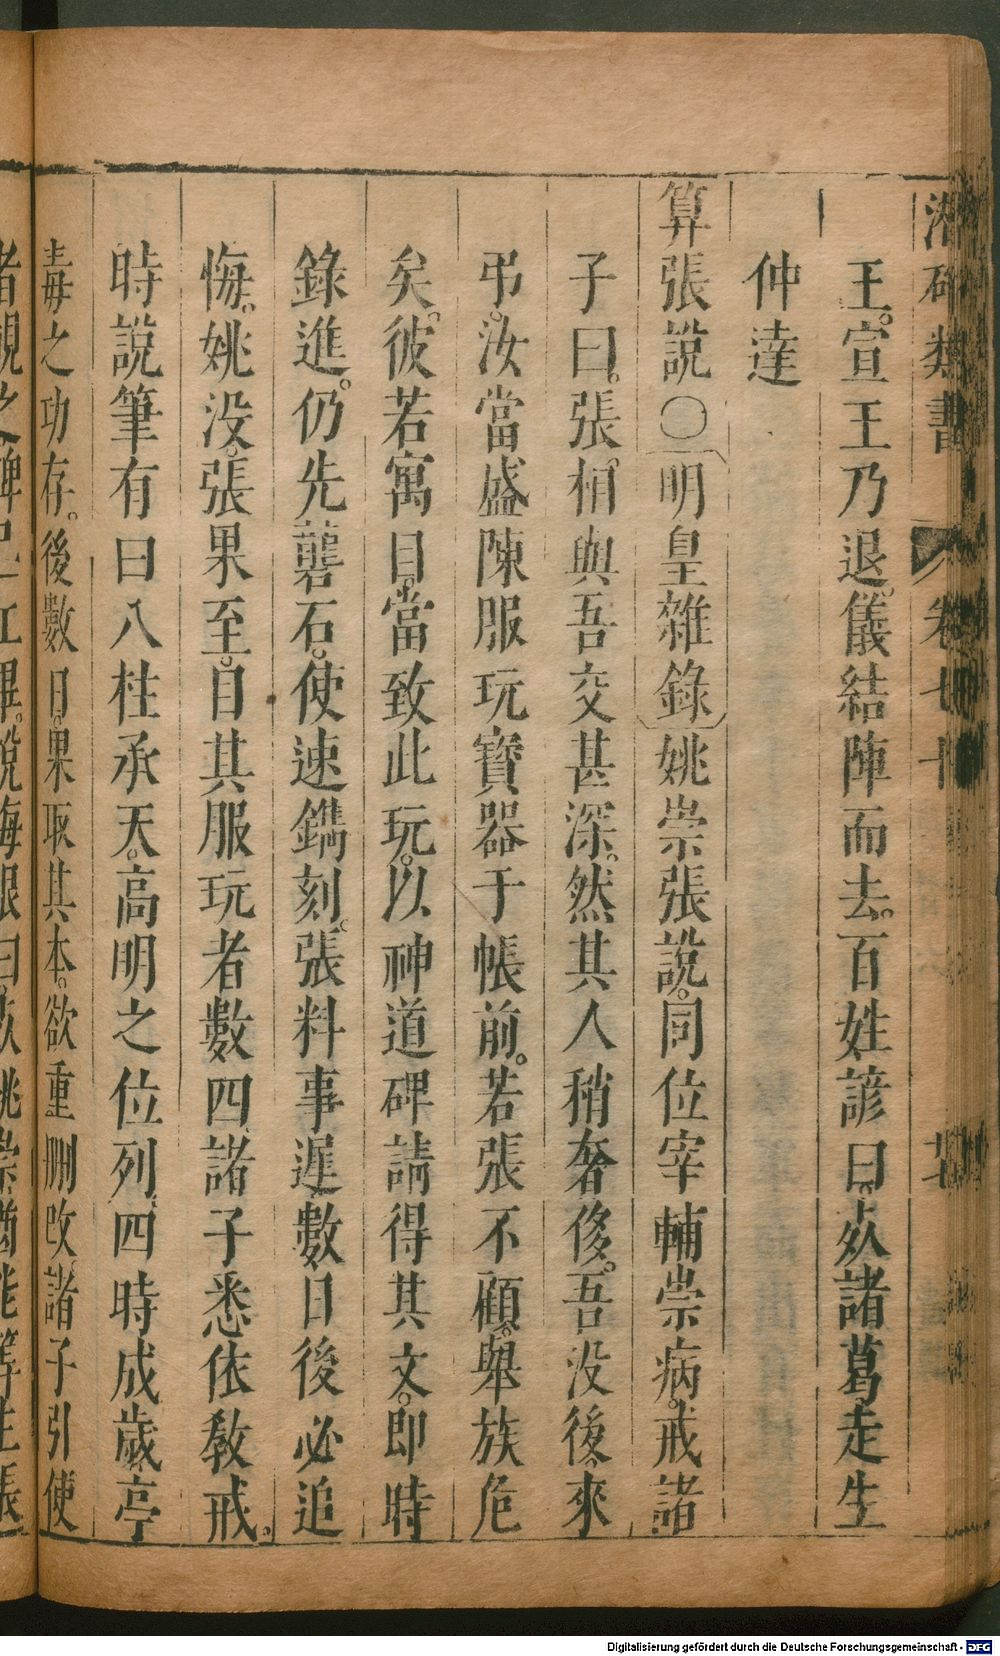 潛确類書 卷七十
王。宣王乃退。儀結陣而去。百姓諺曰。死諸葛走生
仲達
算張說〇明皇雜錄姚崇張說。同位宰輔崇病。戒諸
子曰。張。相與吾交甚深。然其人稍奢侈。吾没後。來
弔。汝當盛陳服玩寶器于帳前。若張不顧。舉族危
矣。彼若寓目。當致此玩。以神道碑請得其文。即時
錄進。仍先礱石。使速鐫刻。張料事遲。數日後必追
悔。姚没。張果至。目其服玩者數四。諸子悉依教戒。
時說筆有曰八柱承天。高明之位列。四時成歲亭
毒之功存。後數日。果取其本。欲重刪改。諸子引使
者覩之碑
Digitalisierung gefördert durch die Deutsche Forschungsgemeinschaft - DFG